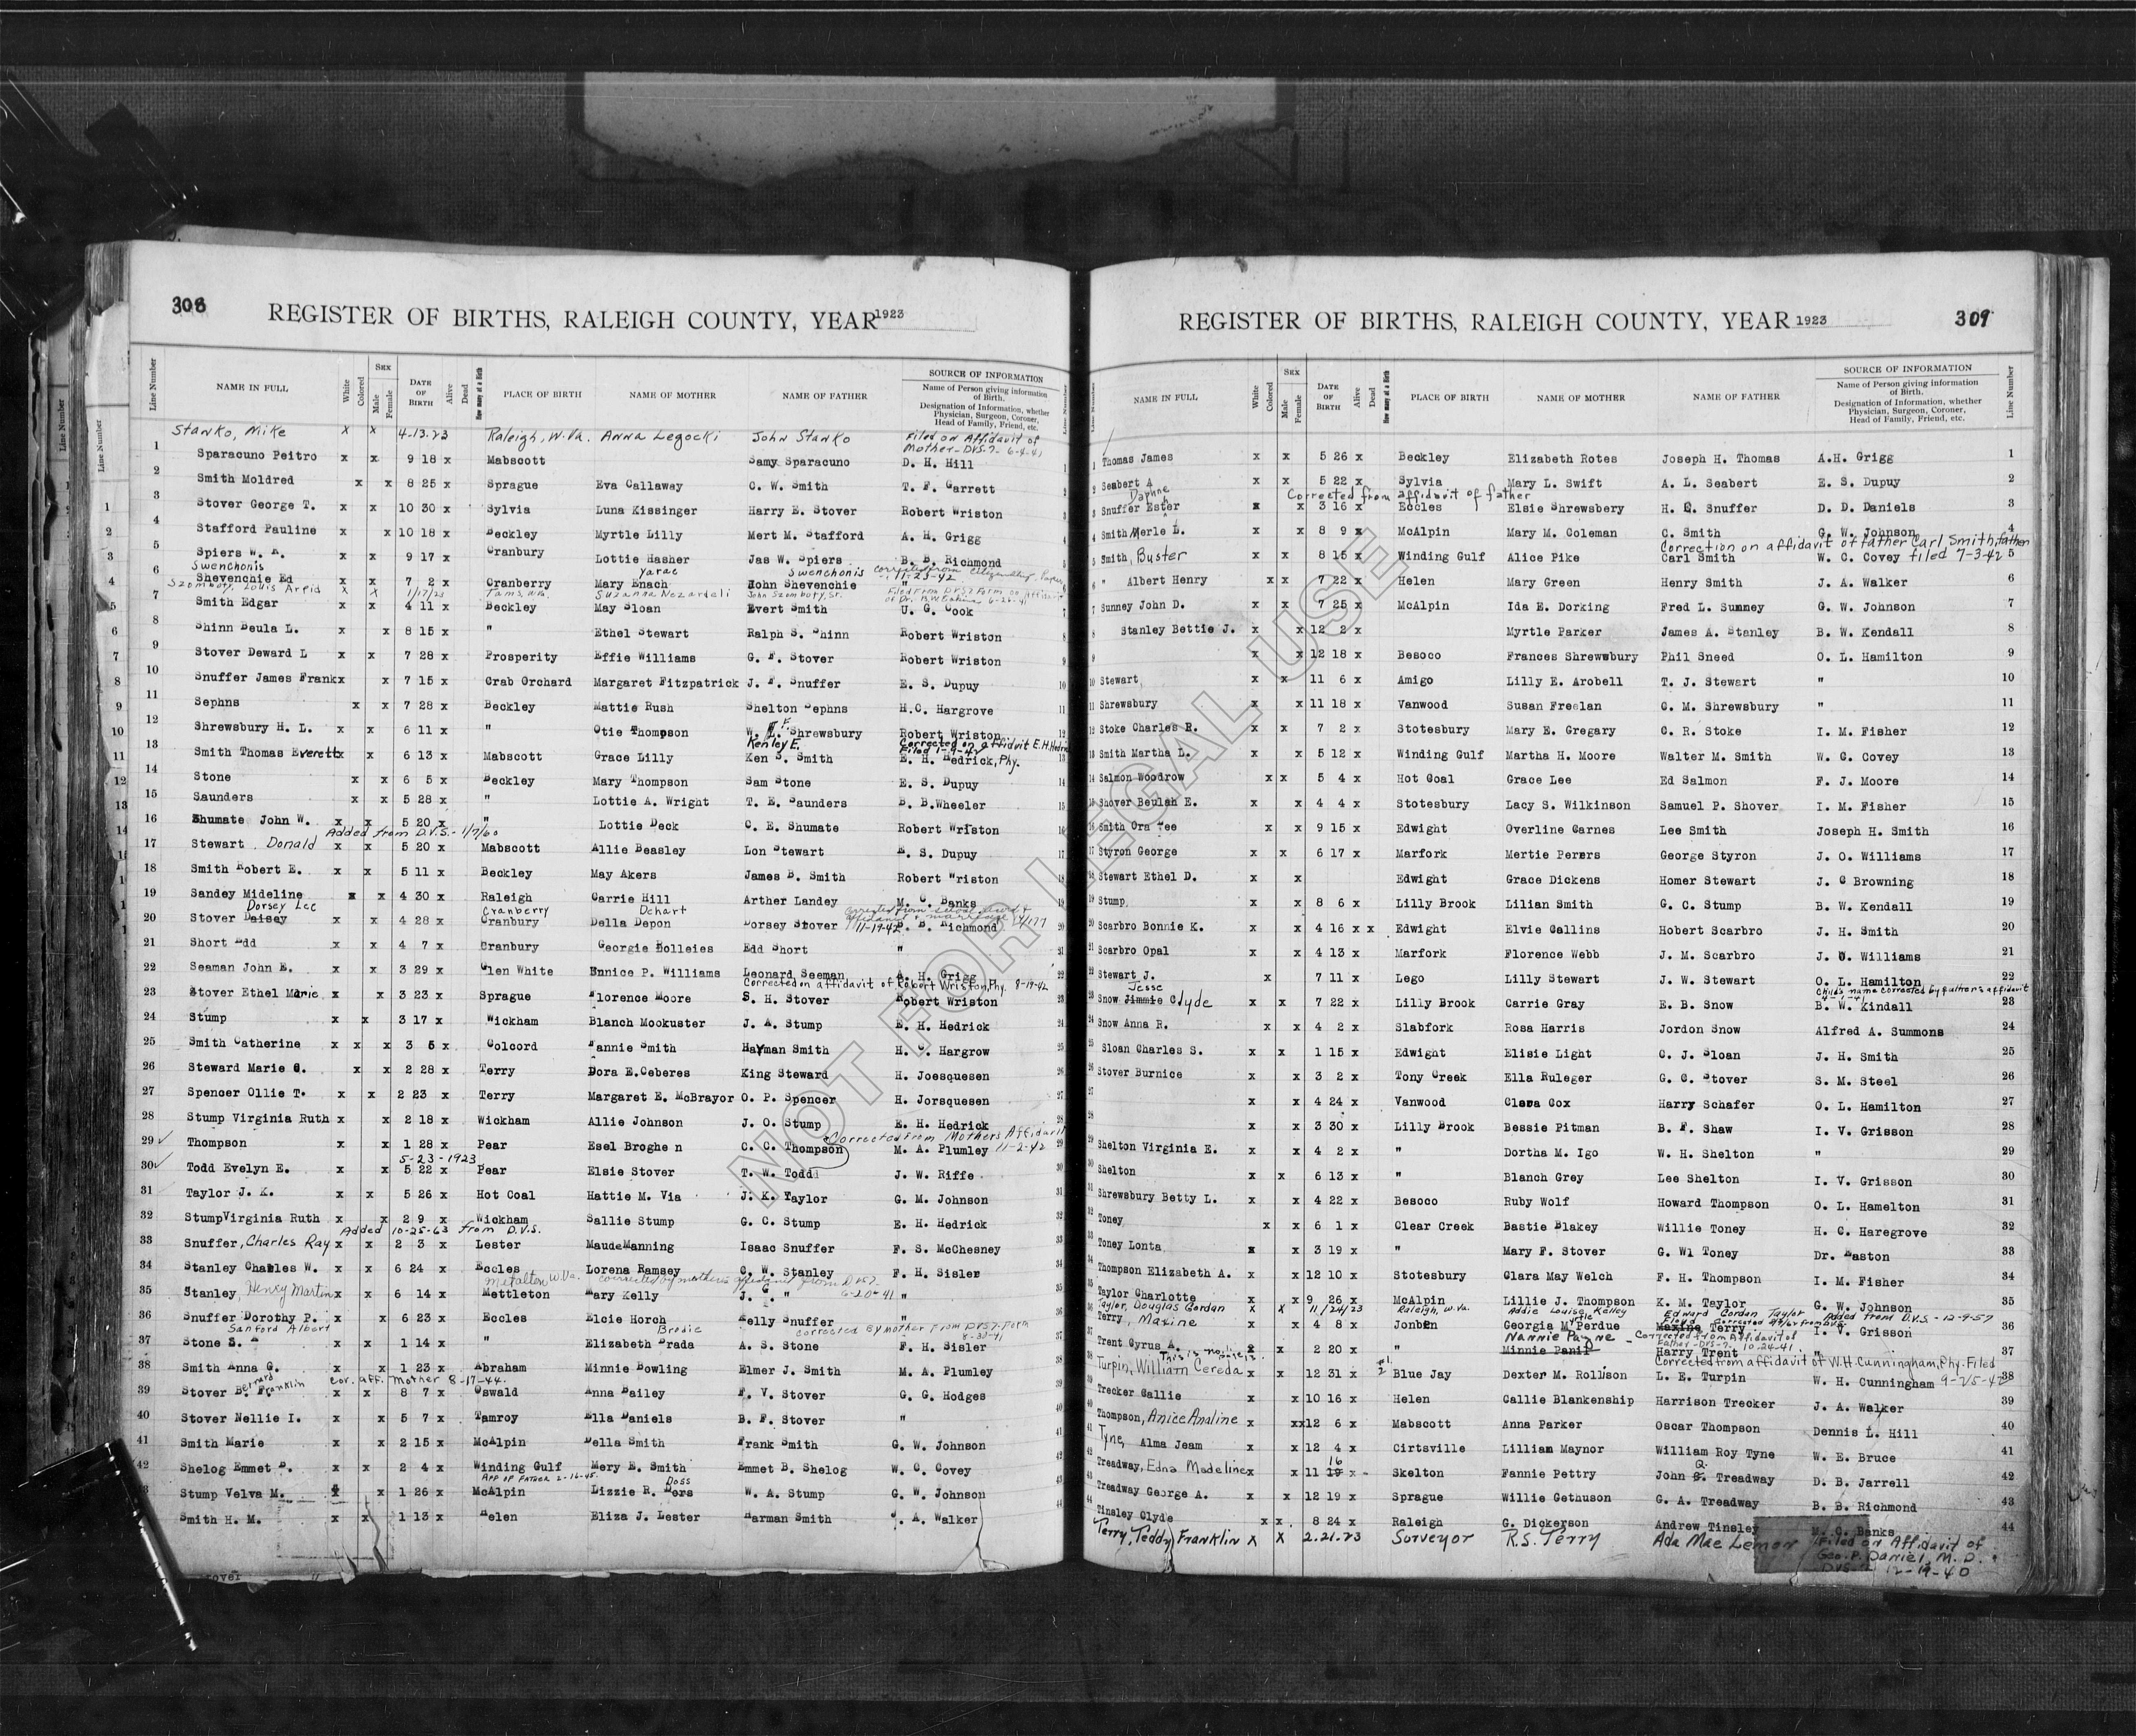 308
REGISTER OF BIRTHS, RALEIGH COUNTY, YEAR 1923
Line Number NAME IN FULL White Colored SEX Male Female DATE OF BIRTH Alive Dead How many at a Birth PLACE OF BIRTH NAME OF MOTHER NAME OF FATHER SOURCE OF INFORMATION
Name of Person giving information of Birth.
Designation of Information, whether Physician, Surgeon, Coroner, Head of Family, Friend, etc.
Stanko, Mike x x 4-13-23 Raleigh, W.Va. Anna Legocki John Stanko Filed on Affidavit of Mother-DVS-7- 6-4-41
1 Sparacuno Peitro x x 9 18 x Mabscott Samy Sparacuno D. H. Hill
2 Smith Moldred x x 8 25 x Sprague Eva Callaway C. W. Smith T. F. Garrett
3 Stover George T. x x 10 30 x Sylvia Luna Kissinger Harry E. Stover Robert Wriston
4 Stafford Pauline x x 10 18 x Beckley Myrtle Lilly Mert M. Stafford A. H. Grigg
5 Spiers W. R. x x 9 17 x Cranbury Lottie Hasher Jas W. Spiers B. B. Richmond
Swenchonis Yarac Swenchonis Corrected from Citizenship Papers 11-23-42
6 Shevenchie Ed x x 7 2 x Cranberry Mary Enach John Shevenchie "
Szombory, Louis Arpid x x 1/17/23 Tams, W.Va. Suzanna Nezardeli John Szomboty, Sr. Filed from DVS7 Form on Affidavit of Dr. B.W. 6-26-41
7 Smith Edgar x x 4 11 x Beckley May Sloan Evert Smith U. G. Cook
8 Shinn Beula L. x x 8 15 x " Ethel Stewart Ralph S. Shinn Robert Wriston
9 Stover Deward L x x 7 28 x Prosperity Effie Williams G. F. Stover Robert Wriston
10 Snuffer James Frank x x 7 15 x Crab Orchard Margaret Fitzpatrick J. F. Snuffer E. S. Dupuy
11 Sephns x x 7 28 x Beckley Mattie Rush Shelton Sephns H.C. Hargrove
12 Shrewsbury H. L. x x 6 11 x " Otie Thompson W. F. Shrewsbury Robert Wriston
Kenley E. Corrected on affidavit E.H. Hedrick Filed 1-9-42
13 Smith Thomas Everett x x 6 13 x Mabscott Grace Lilly Ken S. Smith E. H. Hedrick, Phy.
14 Stone x x 6 5 x Beckley Mary Thompson Sam Stone E. S. Dupuy
15 Saunders x x 5 28 x " Lottie A. Wright T. E. Saunders B. B. Wheeler
16 Shumate John W. x x 5 20 x " Lottie Deck C. E. Shumate Robert Wriston
Added from D.V.S. - 1/7/60
17 Stewart Donald x x 5 20 x Mabscott Allie Beasley Lon Stewart E. S. Dupuy
18 Smith Robert E. x x 5 11 x Beckley May Akers James B. Smith Robert Wriston
19 Sandey Mideline x x 4 30 x Raleigh Carrie Hill Arther Landey M. C. Banks
Dorsey Lee Cranberry Dehart Corrected from school record & affidavit & marriage 11-19-42
20 Stover Daisey x x 4 28 x Cranbury Della Depon Dorsey Stover B. B. Richmond
21 Short Edd x x 4 7 x Cranbury Georgie Holleies Edd Short "
22 Seaman John E. x x 3 29 x Glen White Ennice P. Williams Leonard Seeman A. H. Grigg
Corrected on affidavit of Robert Wriston, Phy. 8-19-42
23 Stover Ethel Marie x x 3 23 x Sprague Florence Moore S. H. Stover Robert Wriston
24 Stump x x 3 17 x Wickham Blanch Mookuster J. A. Stump E. H. Hedrick
25 Smith Catherine x x x 3 5 x Colcord Fannie Smith Hayman Smith H. C. Hargrow
26 Steward Marie C. x x 2 28 x Terry Dora E.Ceberes King Steward H. Joesquesen
27 Spencer Ollie T. x x 2 23 x Terry Margaret E. McBrayor O. P. Spencer H. Jorsquesen
28 Stump Virginia Ruth x x 2 18 x Wickham Allie Johnson J. O. Stump E. H. Hedrick
Corrected from Mothers Affidavit 11-2-42
29 Thompson x x 1 28 x Pear Esel Broghe n C. C. Thompson M. A. Plumley
5-23-1923
30 Todd Evelyn E. x x 5 22 x Pear Elsie Stover T. W. Todd J. W. Riffe
31 Taylor J. K. x x 5 26 x Hot Coal Hattie M. Via J. K. Taylor G. M. Johnson
32 StumpVirginia Ruth x x 2 9 x Wickham Sallie Stump G. C. Stump E. H. Hedrick
Added 10-25-63 from D.V.S.
33 Snuffer, Charles Ray x x 2 3 x Lester MaudeManning Isaac Snuffer F. S. McChesney
34 Stanley Charles W. x x 6 24 x Eccles Lorena Ramsey C. W. Stanley F. H. Sisler
Metalton W.Va. corrected by mothers affidavit from DVS7 6-20-41
35 Stanley, Henry Martin x x 6 14 x Mettleton Mary Kelly J. G. " "
36 Snuffer Dorothy P. x x 6 23 x Eccles Elcie Horch Kelly Snuffer "
Sanford Albert Brodie Corrected by mother from DVS7-Form 8-30-41
37 Stone S. A x x 1 14 x " Elizabeth Prada A. S. Stone F. H. Sisler
38 Smith Anna G. x x 1 23 x Abraham Minnie Bowling Elmer J. Smith M. A. Plumley
Cor. aff. mother 8-17-44.
39 Stover B. Franklin x x 8 7 x Oswald Anna Bailey F. V. Stover G. G. Hodges
40 Stover Nellie I. x x 5 7 x Tamroy Ella Daniels B. F. Stover "
41 Smith Marie x x 2 15 x McAlpin Della Smith Frank Smith G. W. Johnson
42 Shelog Emmet B. x x 2 4 x Winding Gulf Mery E. Smith Emmet B. Shelog W. C. Covey
App of Father 2-16-45. Doss
Stump Velva M. x x 1 26 x McAlpin Lizzie R. Ders W. A. Stump G. W. Johnson
Smith H. M. x x 1 13 x Helen Eliza J. Lester Harman Smith J. A. Walker
309
REGISTER OF BIRTHS, RALEIGH COUNTY, YEAR 1923
Line Number NAME IN FULL White Colored SEX Male Female DATE OF BIRTH Alive Dead How many at a Birth PLACE OF BIRTH NAME OF MOTHER NAME OF FATHER SOURCE OF INFORMATION Line Number
Name of Person giving information of Birth.
Designation of Information, whether Physician, Surgeon, Coroner, Head of Family, Friend, etc.
1 Thomas James x x 5 26 x Beckley Elizabeth Rotes Joseph H. Thomas A.H. Grigg 1
2 Seabert A x x 5 22 x Sylvia Mary L. Swift A. L. Seabert E. S. Dupuy 2
Daphne Corrected from affidavit of father
3 Snuffer Ester x x 3 16 x Eccles Elsie Shrewsbery H. E. Snuffer D. D. Daniels 3
4 Smith Merle D. x x 8 9 x McAlpin Mary M. Coleman C. Smith G. W. Johnson 4
Correction on affidavit of father Carl Smith, father filed 7-3-42
5 Smith, Buster x x 8 15 x Winding Gulf Alice Pike Carl Smith W. C. Covey 5
6 " Albert Henry x x 7 22 x Helen Mary Green Henry Smith J. A. Walker 6
7 Sunney John D. x x 7 25 x McAlpin Ida E. Dorking Fred L. Sumney G. W. Johnson 7
8 Stanley Bettie J. x x 12 2 x Myrtle Parker James A. Stanley B. W. Kendall 8
9 x x 12 18 x Besoco Frances Shrewwbury Phil Sneed O. L. Hamilton 9
10 Stewart x x 11 6 x Amigo Lilly E. Arobell T. J. Stewart " 10
11 Shrewsbury x x 11 18 x Vanwood Susan Freelan C. M. Shrewsbury " 11
12 Stoke Charles R. x x 7 2 x Stotesbury Mary E. Gregary C. R. Stoke I. M. Fisher 12
13 Smith Martha L. x x 5 12 x Winding Gulf Martha H. Moore Walter M. Smith W. C. Covey 13
14 Salmon Woodrow x x 5 4 x Hot Coal Grace Lee Ed Salmon F. J. Moore 14
15 Shover Beulah E. x x 4 4 x Stotesbury Lacy S. Wilkinson Samuel P. Shover I. M. Fisher 15
16 Smith Ora Tee x x 9 15 x Edwight Overline Carnes Lee Smith Joseph H. Smith 16
17 Styron George x x 6 17 x Marfork Mertie Perers George Styron J. O. Williams 17
18 Stewart Ethel D. x x Edwight Grace Dickens Homer Stewart J. C Browning 18
19 Stump x x 8 6 x Lilly Brook Lilian Smith G. C. Stump B. W. Kendall 19
20 Scarbro Bonnie K. x x 4 16 x x Edwight Elvie Callins Hobert Scarbro J. H. Smith 20
21 Scarbro Opal x x 4 13 x Marfork Florence Webb J. M. Scarbro J. O. Williams 21
22 Stewart J. x 7 11 x Lego Lilly Stewart J. W. Stewart O. L. Hamilton 22
Jesse Childs name corrected by father's affidavit 4-1-41
23 Snow Jimmie Clyde x x 7 22 x Lilly Brook Carrie Gray E. B. Snow B. W. Kindall 23
24 Snow Anna R. x x 4 2 x Slabfork Rosa Harris Jordon Snow Alfred A. Summons 24
25 Sloan Charles S. x x 1 15 x Edwight Elisie Light C. J. Sloan J. H. Smith 25
26 Stover Burnice x x 3 2 x Tony Creek Ella Ruleger G. C. Stover S. M. Steel 26
27 x x 4 24 x Vanwood Clara Cox Harry Schafer O. L. Hamilton 27
28 x x 3 30 x Lilly Brook Bessie Pitman B. F. Shaw I. V. Grisson 28
29 Shelton Virginia E. x x 4 2 x " Dortha M. Igo W. H. Shelton " 29
30 Shelton x x 6 13 x " Blanch Grey Lee Shelton I. V. Grisson 30
31 Shrewsbury Betty L. x x 4 22 x Besoco Ruby Wolf Howard Thompson O. L. Hamelton 31
32 Toney x x 6 1 x Clear Creek Bastie Blakey Willie Toney H. C. Haregrove 32
33 Toney Lonta x x 3 19 x " Mary F. Stover G. Wl Toney Dr. Easton 33
34 Thompson Elizabeth A. x x 12 10 x Stotesbury Clara May Welch F. H. Thompson I. M. Fisher 34
35 Taylor Charlotte x x 9 26 x McAlpin Lillie J. Thompson K. M. Taylor G. W. Johnson 35
Taylor, Douglas Gordan x x 11/24/23 Raleigh, W.Va. Addie Louise Kelley Edward Gordan Taylor Added from D.V.S. - 12-9-57
36 Terry, Maxine x x 4 8 x Jonben Georgia M Perdue Maxine Terry I. V. Grisson 36
Nannie Payne - Corrected from Affidavit of Father-DVS-7- 10-24-41
37 Trent Cyrus A. x x 2 20 x " Minnie Panil Harry Trent " 37
Corrected from affidavit of W.H. Cunningham, Phy. Filed 9-25-42
38 Turpin, William Cereda x x 12 31 x Blue Jay Dexter M. Rollison L. E. Turpin W. H. Cunningham 38
39 Trecker Callie x x 10 16 x Helen Callie Blankenship Harrison Trecker J. A. Walker 39
40 Thompson, Anice Analine x xx 12 6 x Mabscott Anna Parker Oscar Thompson Dennis L. Hill 40
41 Tyne, Alma Jeam x x 12 4 x Cirtsville Lilliam Maynor William Roy Tyne W. E. Bruce 41
16 Q.
42 Treadway, Edna Madeline x x 11 19 x Skelton Fannie Pettry John S. Treadway D. B. Jarrell 42
43 Treadway George A. x x 12 19 x Sprague Willie Gethuson G. A. Treadway B. B. Richmond 43
44 Tinsley Clyde x x 8 24 x Raleigh G. Dickerson Andrew Tinsley M. C. Banks 44
Terry, Teddy Franklin x x 2.21.23 Surveyor R.S. Terry Ada Mae Lemon Filed on Affidavit of Geo. P. Daniel, M.D. DVS-7 12-19-40
NOT FOR LEGAL USE